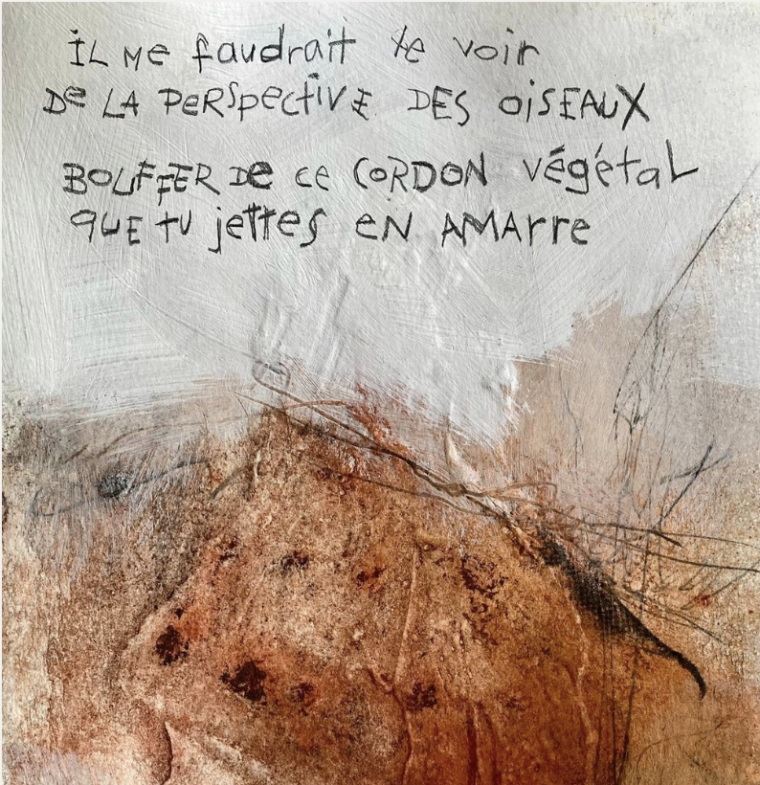 iL Me faudrait te voir
De LA PeRSpectiVE DES OiSEAUX
BOUFFER De ce CORDON végétaL
QUE tU jettes eN AMArre